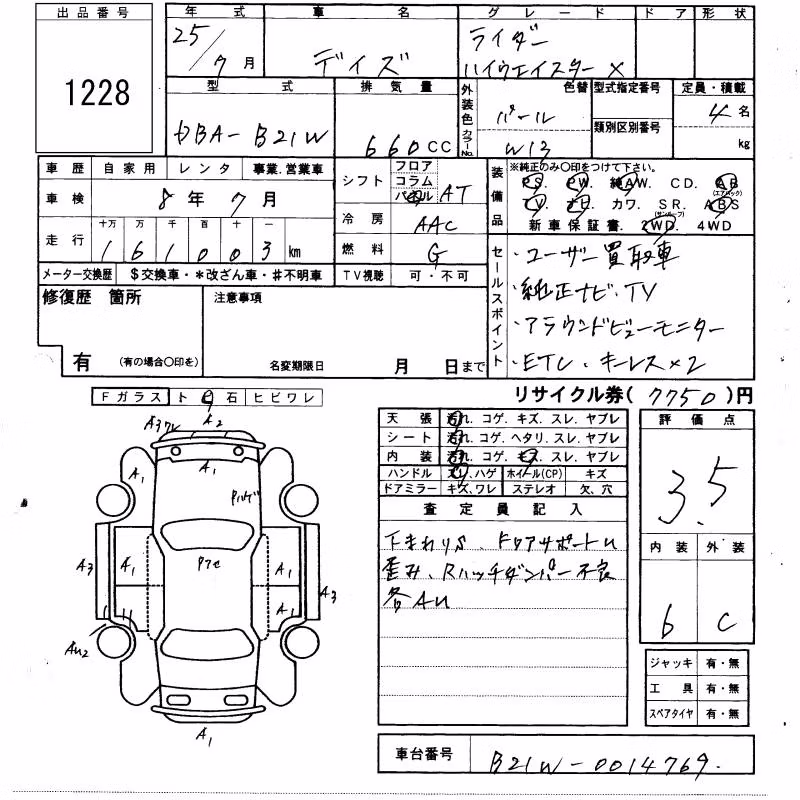 出品番号 年式 車名 グレード ドア 形状
1228
25/7月 デイズ ライダー
ハイウェイスター X
型式 排気量 外装色 色替 型式指定番号 定員・積載
DBA-B21W 660CC パール 4名
カラーNo. W13 類別区別番号 kg
車歴 自家用 レンタ 事業.営業車
車検 8年7月
走行 十万 万 千 百 十 一
161003km
シフト フロア
コラム
パネル AT
冷房 AAC
燃料 G
装備品 ※純正のみ〇印をつけて下さい。
PS. PW. 純AW. CD. AB(エアバック)
TV. ナビ. カワ. SR.(サンルーフ) ABS
新車保証書. 2WD. 4WD
メーター交換歴 $交換車・*改ざん車・#不明車 TV視聴 可・不可
セールスポイント
・ユーザー買取車
・純正ナビ・TV
・アラウンドビューモニター
・ETC・キーレス×2
修復歴 箇所 注意事項
有 (有の場合〇印を) 名変期限日 月 日まで
リサイクル券(7750)円
Fガラス ト ビ 石 ヒビワレ
天張 汚れ. コゲ. キズ. スレ. ヤブレ
シート 汚れ. コゲ. ヘタリ. スレ. ヤブレ
内装 汚れ. コゲ. キズ. スレ. ヤブレ
ハンドル スレ. ハゲ ホイール(CP) キズ
ドアミラー キズ. ワレ ステレオ 欠、穴
評価点
3.5
内装 外装
b C
査定員記入
下まわりS、ドアサポートU
歪み、Rハッチダンパー不良
各AU
A3ワレ A2
A1
A1 Pハゲ
A3 A1 Pアセ A1 A3
A1
AU2
A1
ジャッキ 有・無
工具 有・無
スペアタイヤ 有・無
車台番号 B21W-0014769.